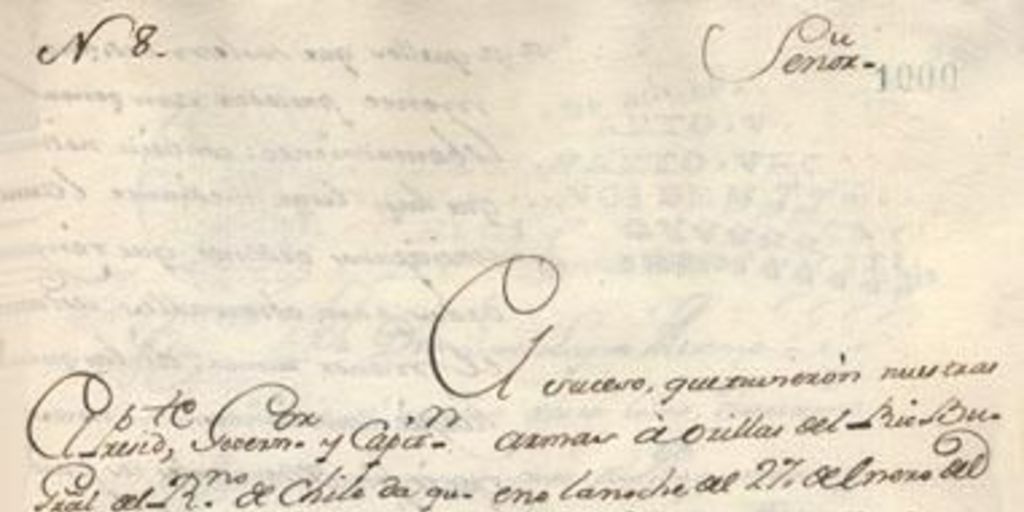 N 8.
Señor.
1000
El suceso, que tuvieron nuestras
El Presid.te, Governor. y Capitn. armas à orillas del Rio Bue-
Gral del R.no de Chile da qu- eno la noche del 27. de Enero del